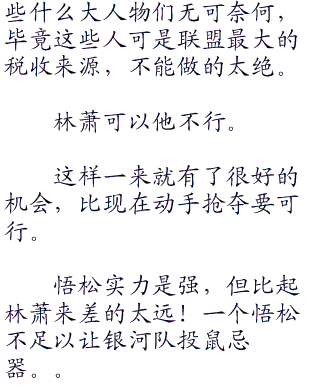 些什么大人物们无可奈何，
毕竟这些人可是联盟最大的
税收来源，不能做的太绝。
林萧可以他不行。
这样一来就有了很好的
机会，比现在动手抢夺要可
行。
悟松实力是强，但比起
林萧来差的太远！一个悟松
不足以让银河队投鼠忌
器。。